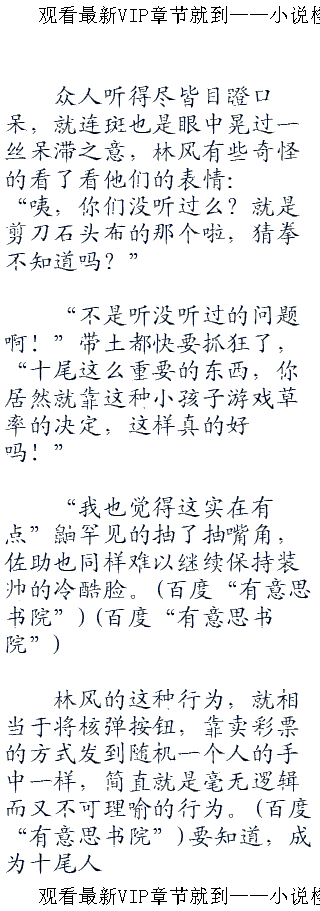 观看最新VIP章节就到——小说
众人听得尽皆目瞪口
呆，就连斑也是眼中晃过一
丝呆滞之意，林风有些奇怪
的看了看他们的表情：
“咦，你们没听过么？就是
剪刀石头布的那个啦，猜拳
不知道吗？”
“不是听没听过的问题
啊！”带土都快要抓狂了，
“十尾这么重要的东西，你
居然就靠这种小孩子游戏草
率的决定，这样真的好
吗！”
“我也觉得这实在有
点”鼬罕见的抽了抽嘴角，
佐助也同样难以继续保持装
帅的冷酷脸。(百度“有意思
书院”)(百度“有意思书
院”)
林风的这种行为，就相
当于将核弹按钮，靠卖彩票
的方式发到随机一个人的手
中一样，简直就是毫无逻辑
而又不可理喻的行为。(百度
“有意思书院”)要知道，成
为十尾人
观看最新VIP章节就到——小说